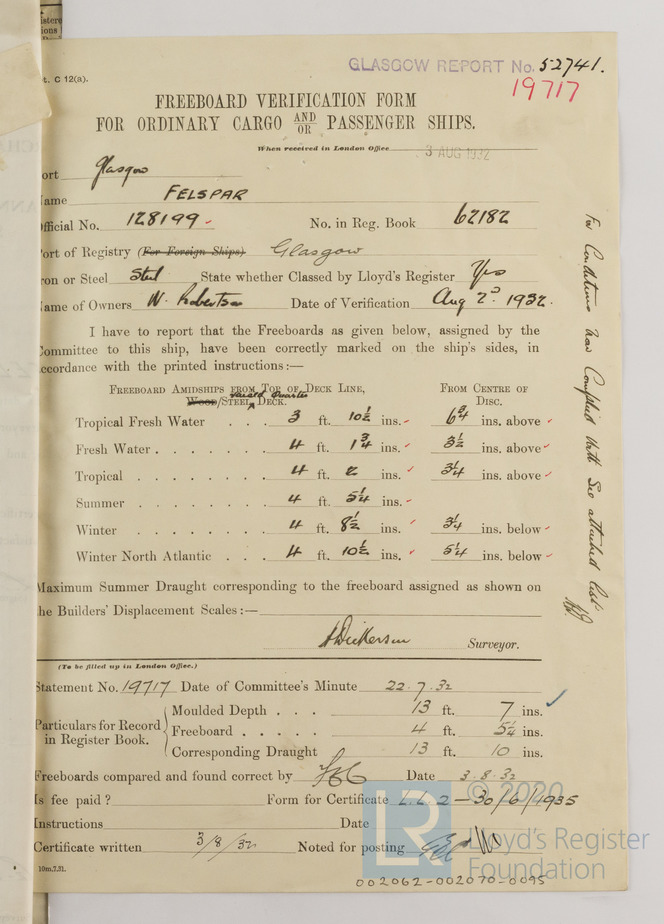 istere
ions
GLASGOW REPORT No. 52741.
t. C 12(a).
19717
FREEBOARD VERIFICATION FORM
FOR ORDINARY CARGO AND/OR PASSENGER SHIPS.
When received in London Office 3 AUG 1932
ort Glasgow
ame FELSPAR
fficial No. 128199 No. in Reg. Book 62182
ort of Registry (For Foreign Ships) Glasgow
ron or Steel Steel State whether Classed by Lloyd's Register Yes
ame of Owners W. Robertson Date of Verification Aug 2nd. 1932.
I have to report that the Freeboards as given below, assigned by the
Committee to this ship, have been correctly marked on the ship's sides, in
ccordance with the printed instructions:—
FREEBOARD AMIDSHIPS FROM TOP OF DECK LINE, FROM CENTRE OF
Raised Quarter
WOOD/STEEL DECK. DISC.
Tropical Fresh Water . . . 3 ft. 10½ ins. 6¾ ins. above
Fresh Water . . . . . . . 4 ft. 1¾ ins. 3½ ins. above
Tropical . . . . . . . . 4 ft. 2 ins. 3¼ ins. above
Summer . . . . . . . . 4 ft. 5¼ ins.
Winter . . . . . . . . 4 ft. 8½ ins. 3¼ ins. below
Winter North Atlantic . . . 4 ft. 10½ ins. 5¼ ins. below
Maximum Summer Draught corresponding to the freeboard assigned as shown on
he Builders' Displacement Scales:—
Surveyor.
(To be filled up in London Office.)
Statement No. 19717 Date of Committee's Minute 22.7.32
Particulars for Record in Register Book.
Moulded Depth . . . 13 ft. 7 ins.
Freeboard . . . . . 4 ft. 5¼ ins.
Corresponding Draught 13 ft. 10 ins.
Freeboards compared and found correct by Date 3.8.32
Is fee paid? Form for Certificate L.L.2 — 30/6/1935
Instructions Date
Certificate written 3/8/32 Noted for posting
10m.7.31.
002062-002070-0095
For Conditions how Complied with See attached list.
© 2020
LR
Lloyd's Register
Foundation